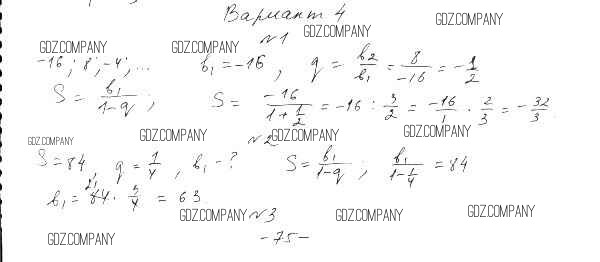 Вариант 4
GDZ.COMPANY
№1
GDZ.COMPANY GDZ.COMPANY GDZ.COMPANY GDZ.COMPANY
-16; 8; -4; ... b₁ = -16, q = b₂/b₁ = 8/-16 = -1/2
S = b₁/1-q; S = -16/1+1/2 = -16 : 3/2 = -16/1 · 2/3 = -32/3
GDZ.COMPANY GDZ.COMPANY №2 GDZ.COMPANY GDZ.COMPANY
S = 84, q = 1/4, b₁ - ? S = b₁/1-q; b₁/1-1/4 = 84
b₁ = 84 · 3/4 = 63
GDZ.COMPANY №3 GDZ.COMPANY GDZ.COMPANY
GDZ.COMPANY -75-